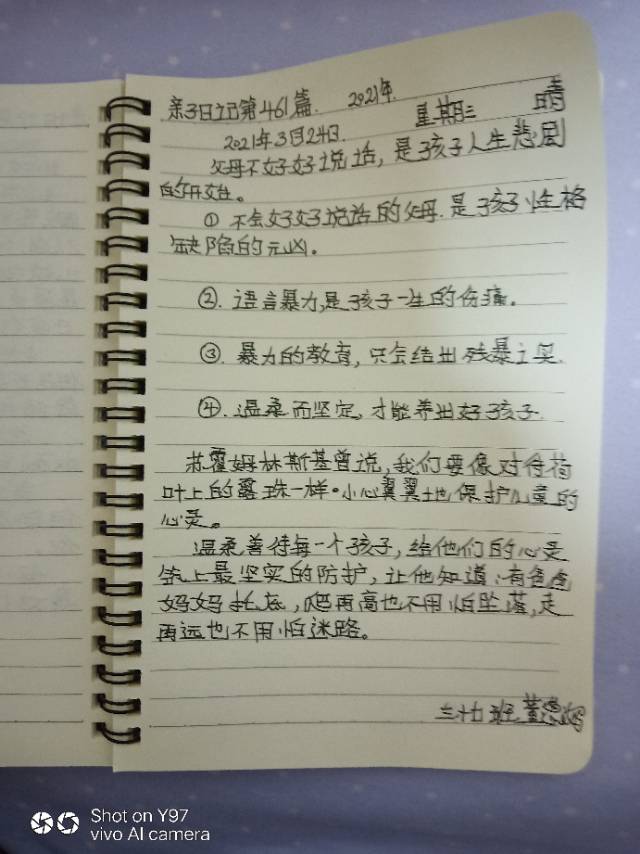 亲子日记第461篇. 2021年.
2021年3月24日. 星期三 晴
父母不好好说话, 是孩子人生悲剧
的开始。
① 不会好好说话的父母. 是孩子性格
缺陷的元凶。
②. 语言暴力,是孩子一生的伤痛。
③. 暴力的教育, 只会结出残暴之果.
④. 温柔而坚定, 才能养出好孩子.
苏霍姆林斯基曾说, 我们要像对待荷
叶上的露珠一样·小心翼翼地保护儿童的
心灵。
温柔善待每一个孩子, 给他们的心灵
筑上最坚实的防护, 让他知道:有爸爸
妈妈托底, 爬再高也不用怕坠落, 走
再远也不用怕迷路。
三十七班
Shot on Y97
vivo AI camera